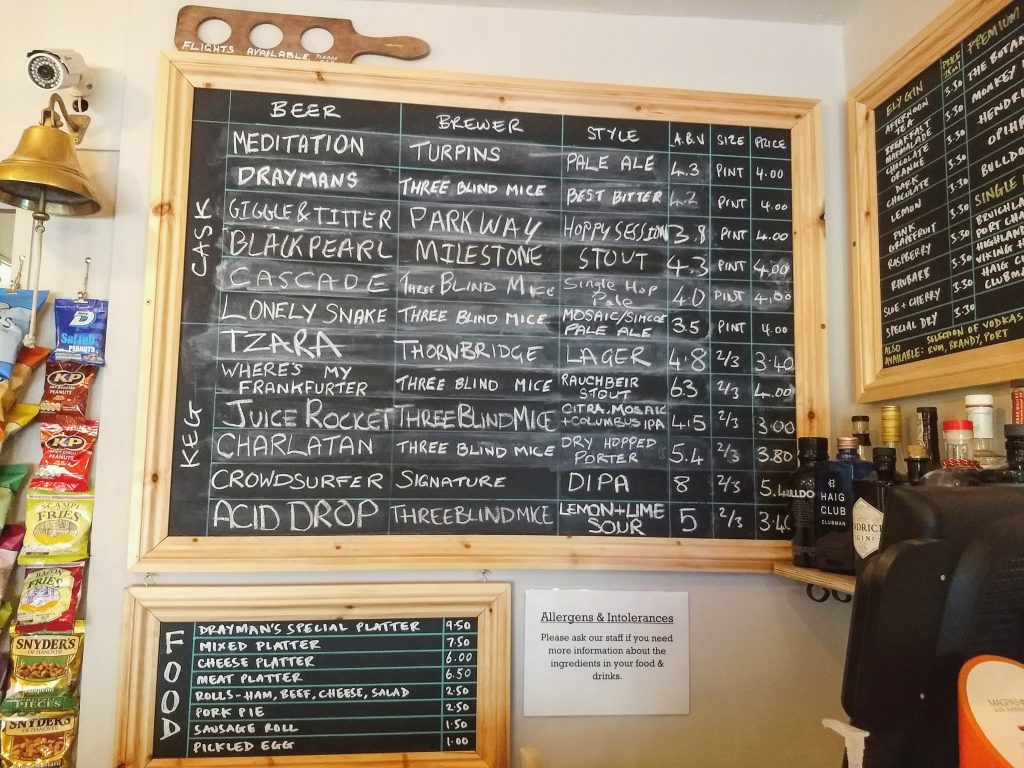 FLIGHTS AVAILABLE, PLEASE
BEER BREWER STYLE A.B.V SIZE PRICE
CASK
MEDITATION TURPINS PALE ALE 4.3 PINT 4.00
DRAYMANS THREE BLIND MICE BEST BITTER 4.2 PINT 4.00
GIGGLE & TITTER PARKWAY HOPPY SESSION 3.8 PINT 4.00
BLACK PEARL MILESTONE STOUT 4.3 PINT 4.00
CASCADE THREE BLIND MICE SINGLE HOP PALE 4.0 PINT 4.00
LONELY SNAKE THREE BLIND MICE MOSAIC/SIMCOE PALE ALE 3.5 PINT 4.00
KEG
TZARA THORNBRIDGE LAGER 4.8 2/3 3.40
WHERE'S MY FRANKFURTER THREE BLIND MICE RAUCHBEIR STOUT 6.3 2/3 4.00
JUICE ROCKET THREE BLIND MICE CITRA, MOSAIC + COLUMBUS IPA 4.5 2/3 3.00
CHARLATAN THREE BLIND MICE DRY HOPPED PORTER 5.4 2/3 3.80
CROWDSURFER SIGNATURE DIPA 8 2/3 5.4
ACID DROP THREE BLIND MICE LEMON + LIME SOUR 5 2/3 3.40
FOOD
DRAYMAN'S SPECIAL PLATTER 9.50
MIXED PLATTER 7.50
CHEESE PLATTER 6.00
MEAT PLATTER 6.50
ROLLS - HAM, BEEF, CHEESE, SALAD 2.50
PORK PIE 2.50
SAUSAGE ROLL 1.50
PICKLED EGG 1.00
Allergens & Intolerances
Please ask our staff if you need
more information about the
ingredients in your food &
drinks.
ELY GIN PRICE
AFTERNOON TEA 3.30
BREAKFAST MARMALADE 3.30
CHOCOLATE ORANGE 3.30
DARK CHOCOLATE 3.30
LEMON 3.30
PINK GRAPEFRUIT 3.30
RASPBERRY 3.30
RHUBARB 3.30
SLOE + CHERRY 3.30
SPECIAL DRY 3.30
PREMIUM
THE BOTAN
MONKEY
HENDRI
OPIHR
BULLDO
SINGLE
BRUICHLA
PORT CHA
HIGHLAN
VIKING H
HAIG C
CLUBMAN
ALSO SELECTION OF VODKAS
AVAILABLE: RUM, BRANDY, PORT
Salted
PEANUTS
KP
PEANUTS
KP
PEANUTS
SCAMPI
FRIES
BACON
FRIES
SNYDER'S
OF HANOVER
Jalapeño
PIECES
SNYDER'S
OF HANOVER
ULLDO
HAIG
CLUB
CLUBMAN
NDRICK
GIN
MAGPIE